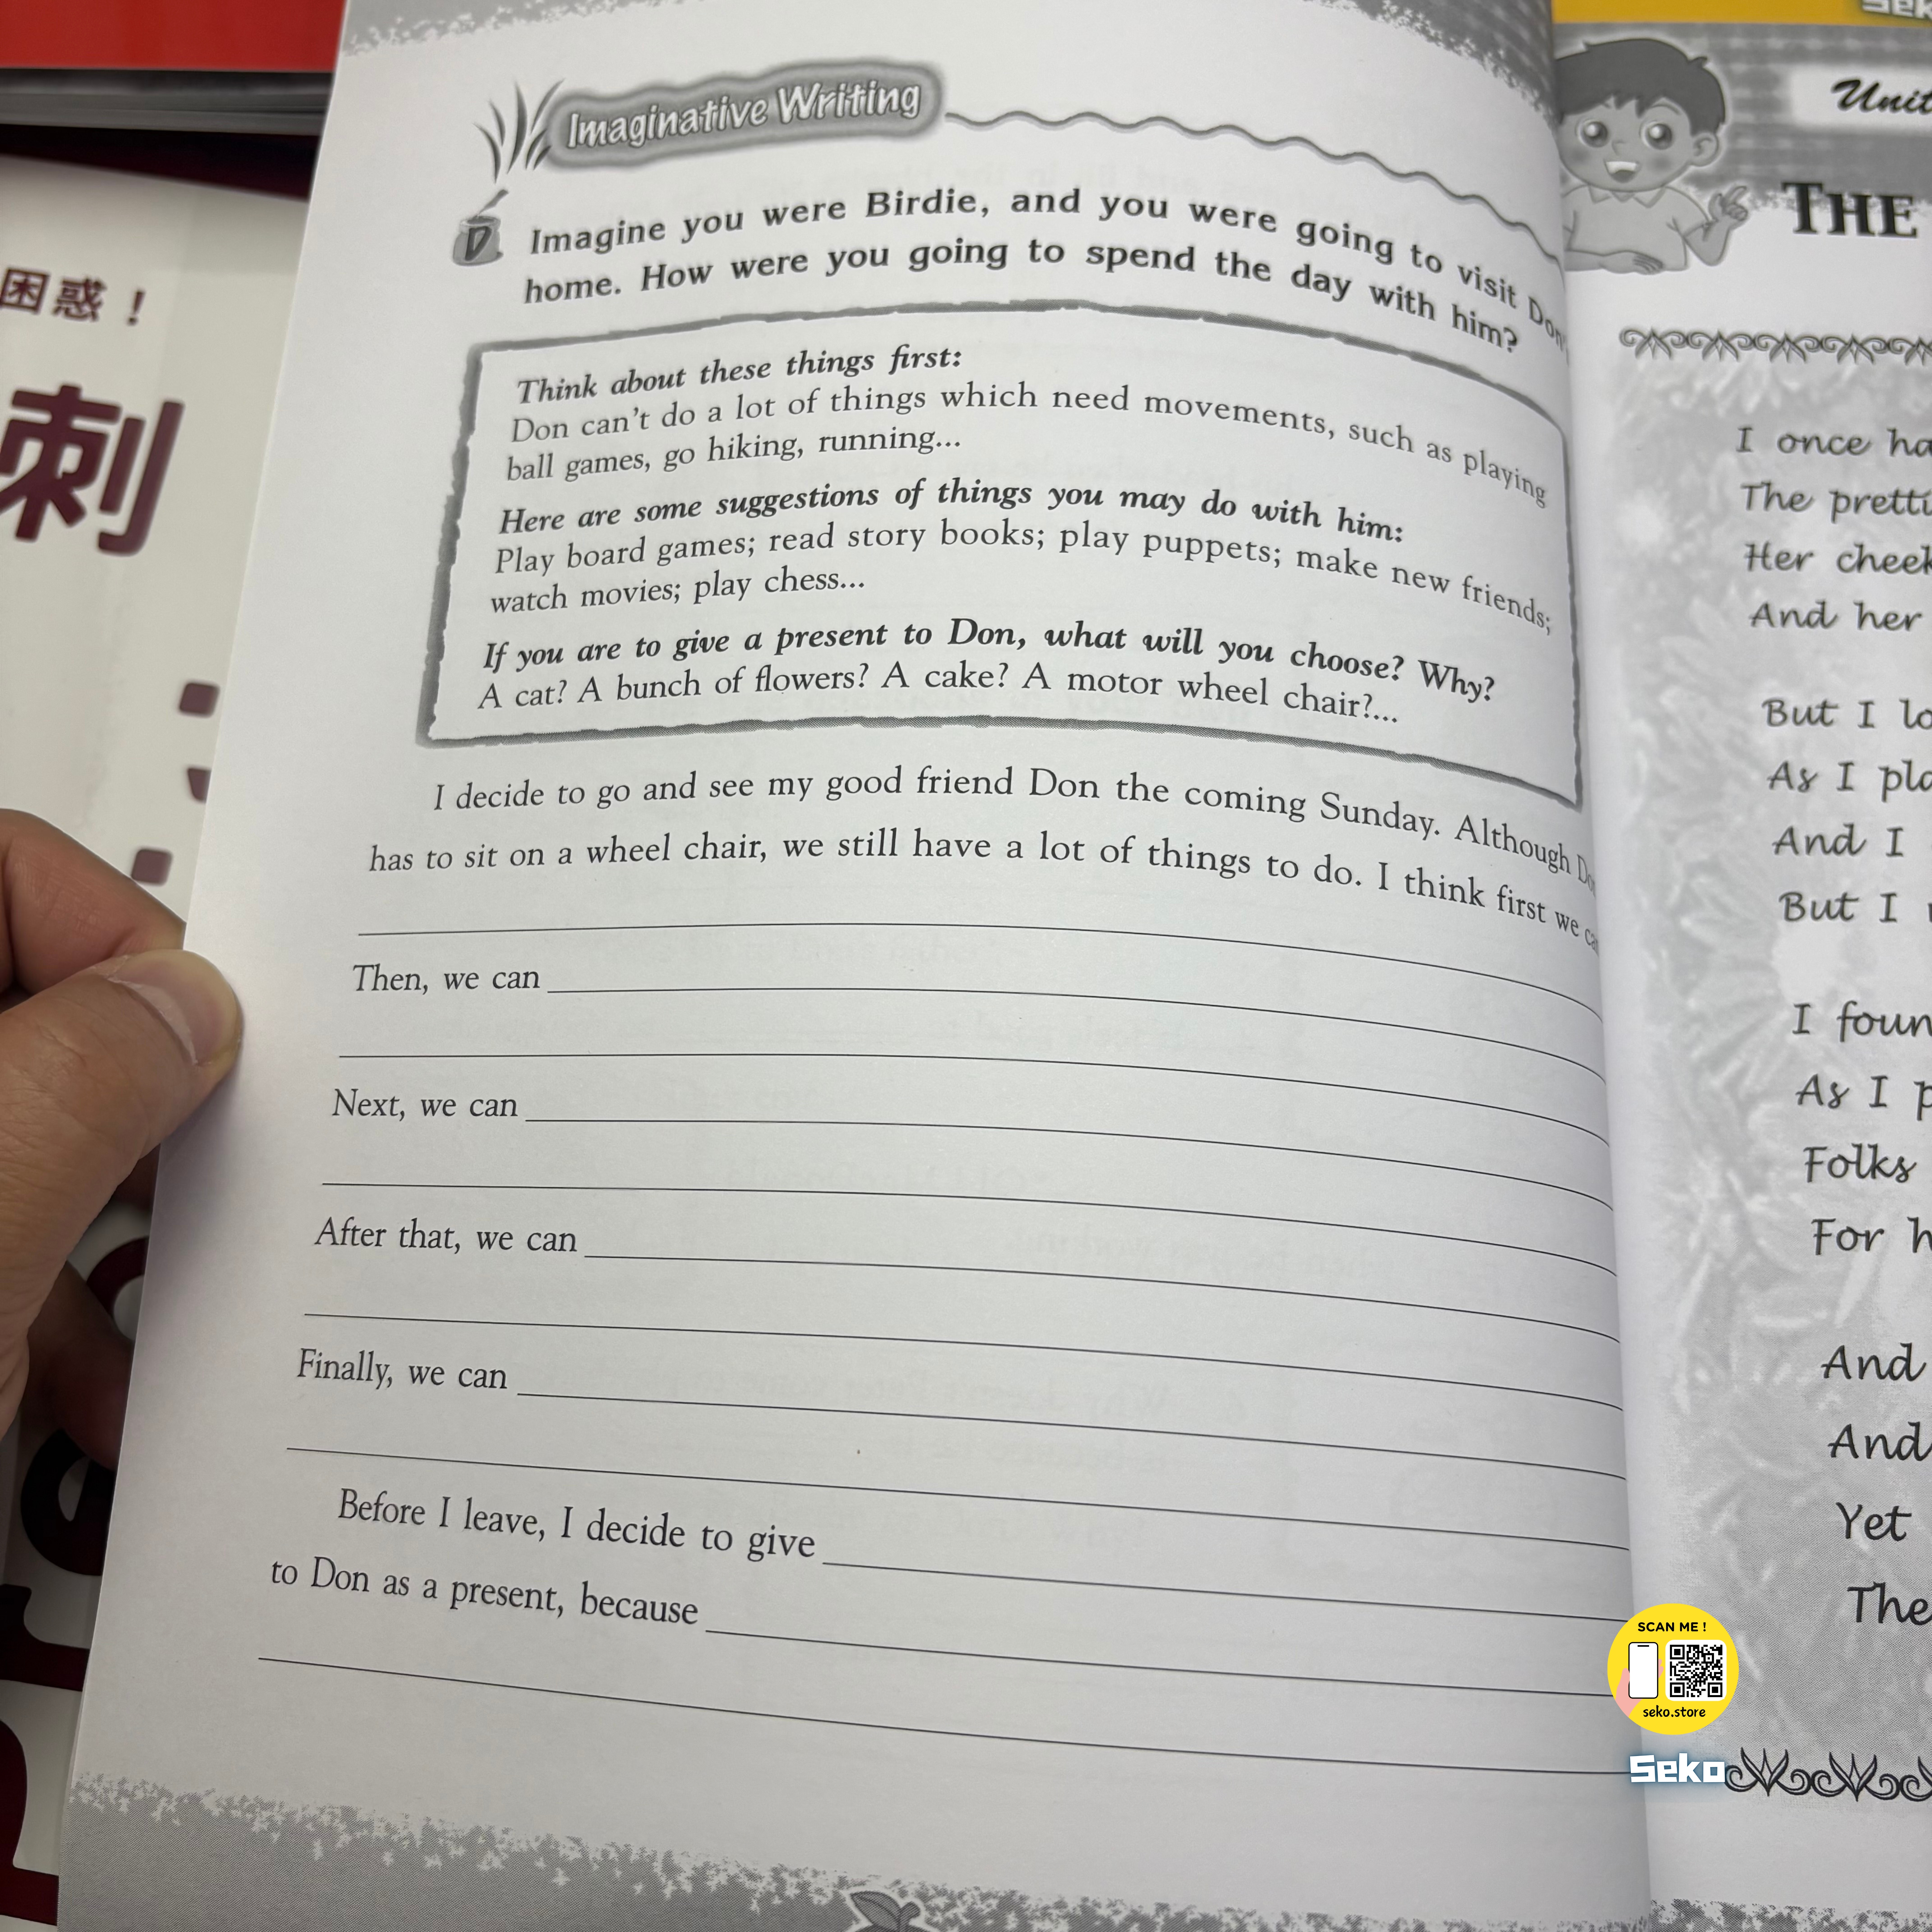 困惑！
刺
Imaginative Writing
D
Imagine you were Birdie, and you were going to visit
home. How were you going to spend the day with him?
Think about these things first:
Don can't do a lot of things which need movements, such as playing
ball games, go hiking, running...
Here are some suggestions of things you may do with him:
Play board games; read story books; play puppets; make new friends;
watch movies; play chess...
If you are to give a present to Don, what will you choose? Why?
A cat? A bunch of flowers? A cake? A motor wheel chair?...
I decide to go and see my good friend Don the coming Sunday. Although
has to sit on a wheel chair, we still have a lot of things to do. I think first we
Then, we can
Next, we can
After that, we can
Finally, we can
Before I leave, I decide to give
to Don as a present, because
Unit
THE
I once
The
Her
And her
But I
As I
And I
But I
I
As I
Folks
For
And
And
Yet
The
SCAN ME !
seko.store
Seko